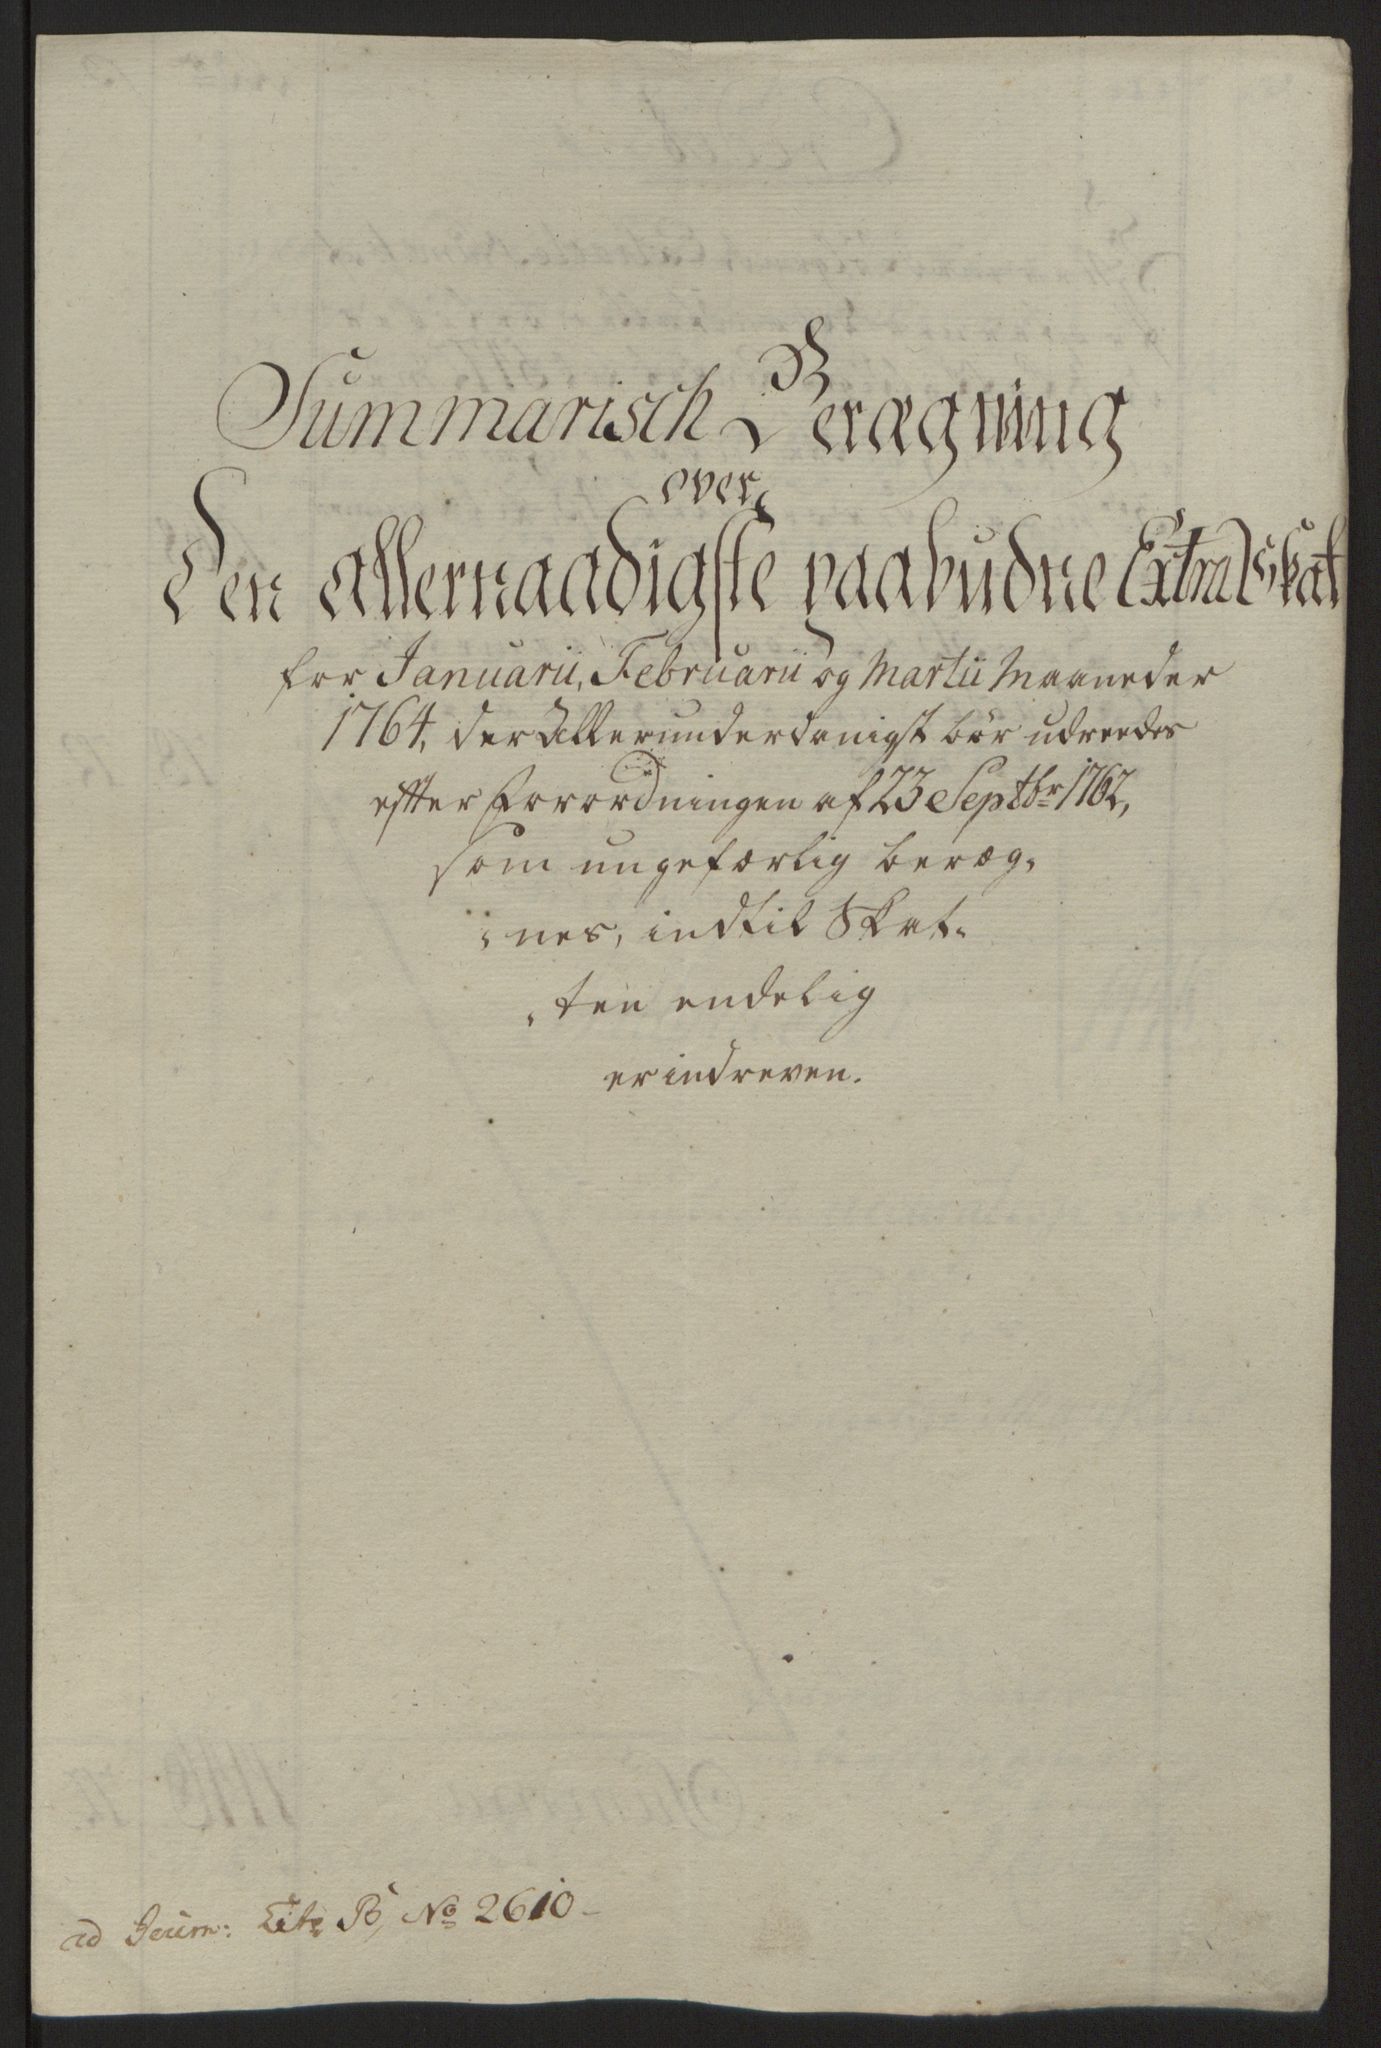 Summarisch Beregning
over
Den allernaadigste paabudne Extra Skat
for Januarii, Februarii og Martii Maaneder
1764, der Allerunderdanigst bör udreedes
efter Forordningen af 23 Septbr 1762,
som ungefærlig beræg,
,nes, indtil Skat,
,ten endelig
er indreven.
ad Journ: Litr B, No 2610